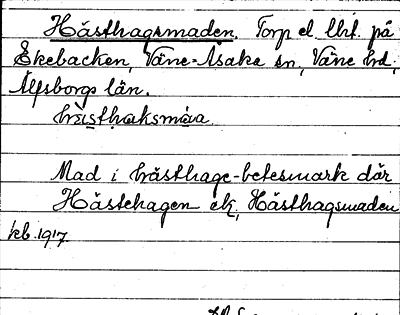 Hästhagsmaden. Torp el. lht. på
Ekebacken, Väne-Åsaka sn, Väne hd,
Älfsborgs län.
hästhaksmáa
Mad i hästhage-betesmark där
Hästehagen ek, Hästhagsmaden
kb. 1917.